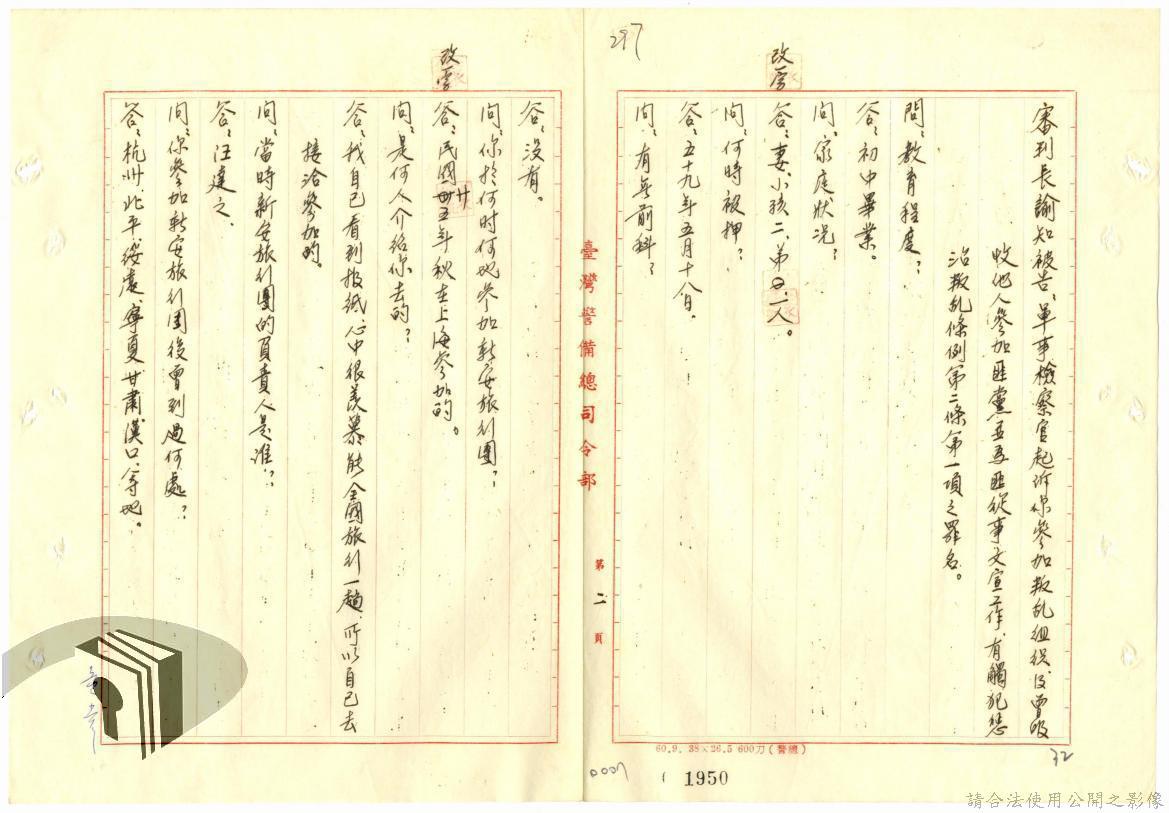 審判長諭知被告:軍事檢察官起訴你參加叛乱組織及曾吸
收他人參加匪黨並為匪從事文宣工作、有觸犯懲
治叛乱條例第二條第一項之罪名。
問:教育程度?
答:初中畢業。
問:家庭狀况?
答:妻、小孩二、弟一人。
問:何時被押?
答:五十九年五月十八日。
問:有無前科?
答:沒有。
問:你於何时何地参加新安旅行團?
答:民國廿五年秋在上海參加的。
問:是何人介紹你去的?
答:我自己看到报紙、心中很羨慕能全國旅行一趟、所以自己去
接洽參加的。
問:當時新安旅行團的負責人是誰?
答:汪達之、
問:你參加新安旅行团後曾到過何處?
答:杭州、北平、綏遠、寧夏、甘肅、漢口、等地。
改
改
臺灣警備總司令部
第二頁
60.9. 38×26.5 600刀(警總)
297
32
0007
1950
請合法使用公開之影像